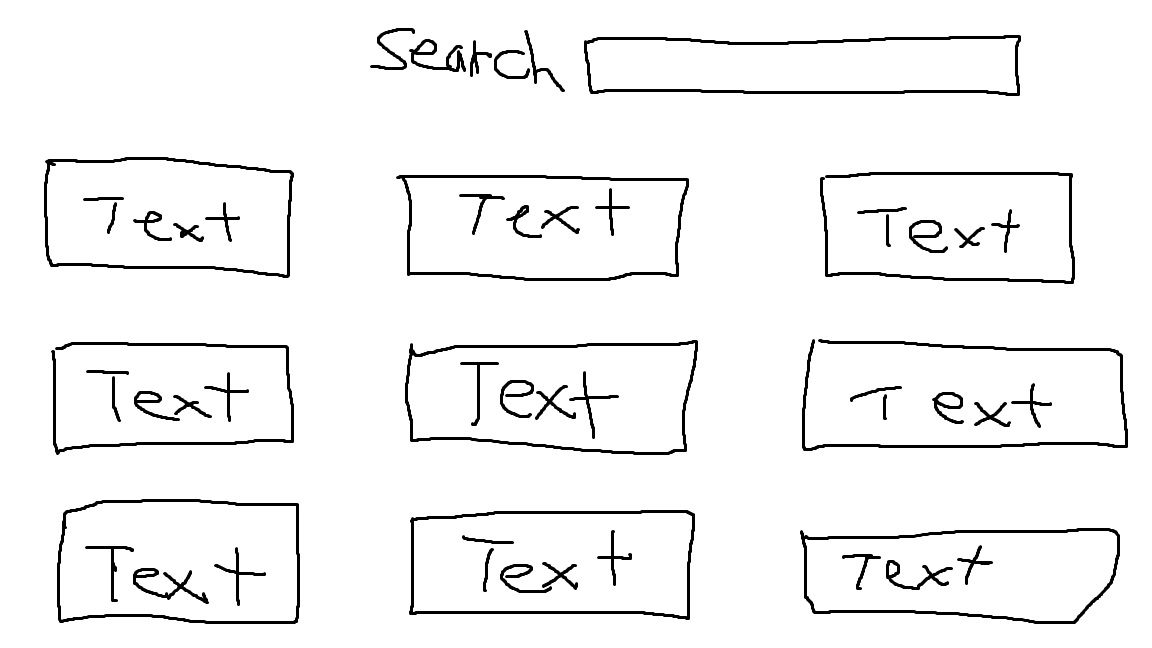 Search
Text Text Text
Text Text Text
Text Text Text